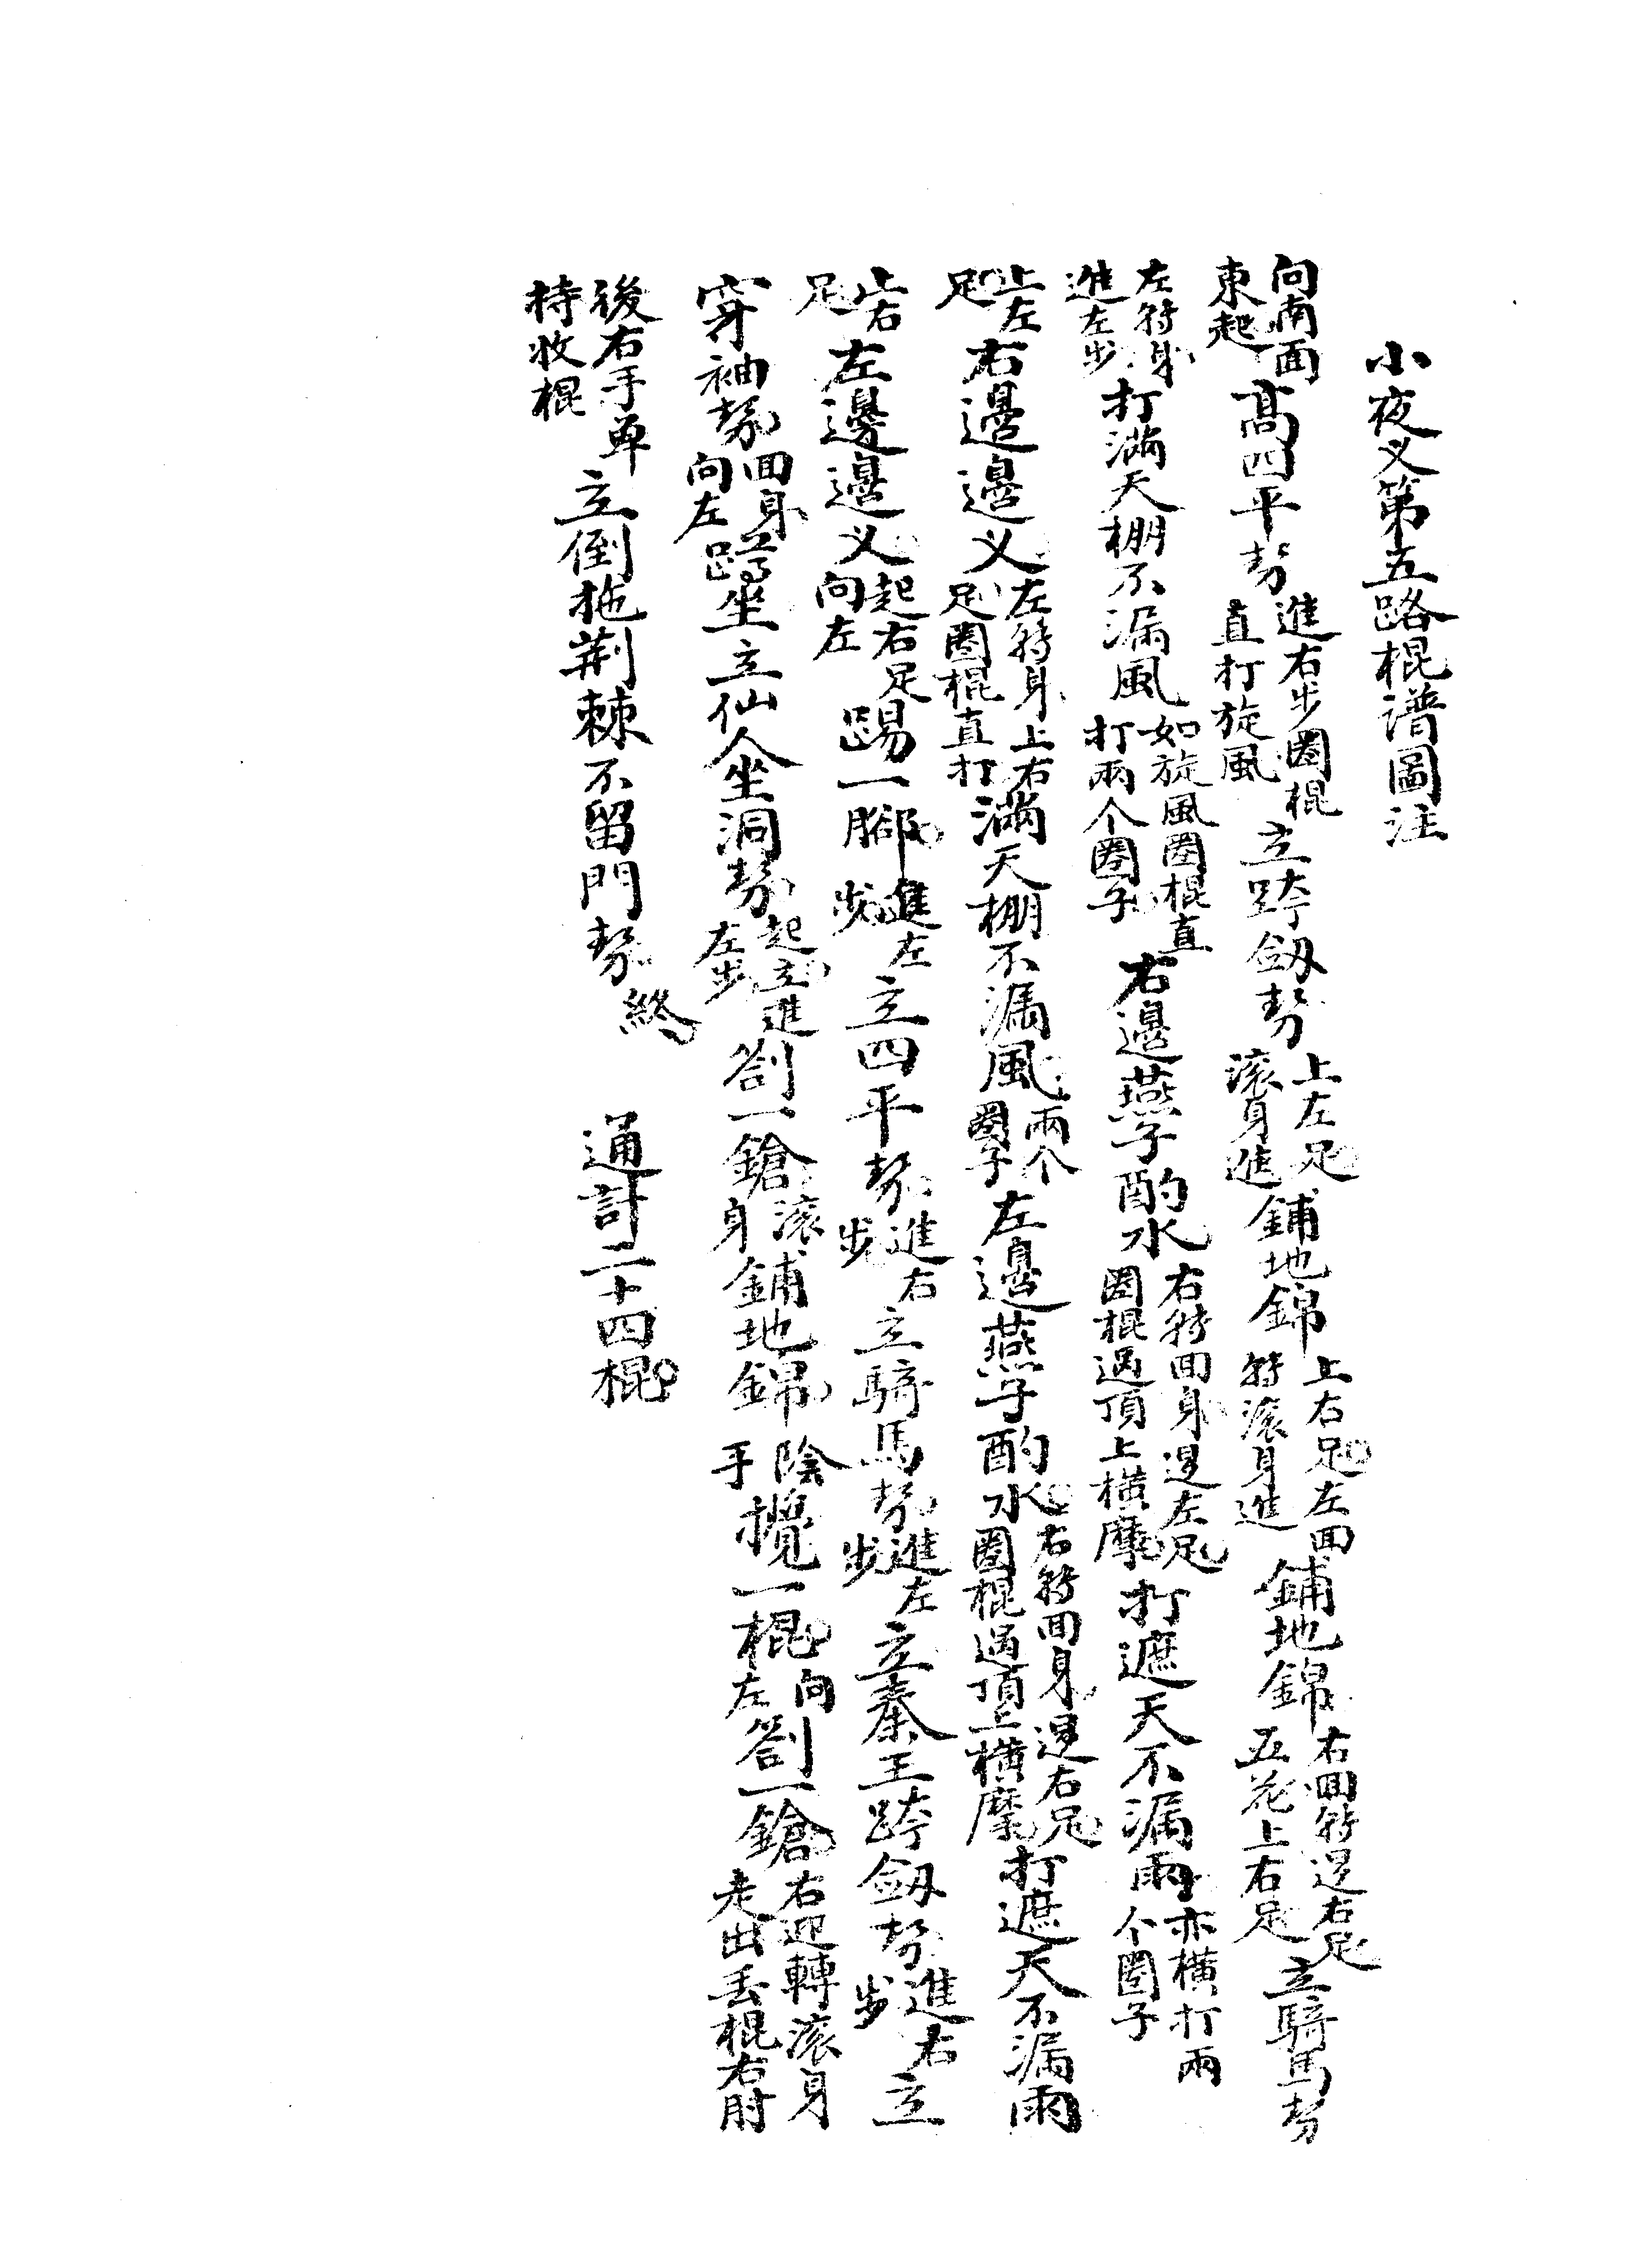 小夜义第五路棍谱圖注
向南面東起高四平势進右步圈棍直打旋風立跨劔势上左足滚身進鋪地錦上右足左回转滚身進鋪地錦右回转退右足五花上右足立騎馬势
左转身進左步打滿天棚不漏風如旋風圈棍直打兩个圈子右邊燕子酌水右转回身退左足圈棍過頂上橫摩打遮天不漏雨亦橫打兩个圈子
上左足右邊邊义左转身上右足圈棍直打滿天棚不漏風兩个圈子左邊燕子酌水右转回身退右足圈棍過頂上橫摩打遮天不漏雨
上右足左邊邊义起右足向左踢一腳進左步立四平势進右步立騎馬势進左步立秦王跨劔势進右步立
穿袖势回身向左蹲坐立仙人坐洞势起立進左步劄一鎗滚身鋪地錦陰手攪一棍向左劄一鎗右迎轉滚身走出丢棍右肘
後右手单持收棍立倒拖荆棘不留門势終 通計二十四棍